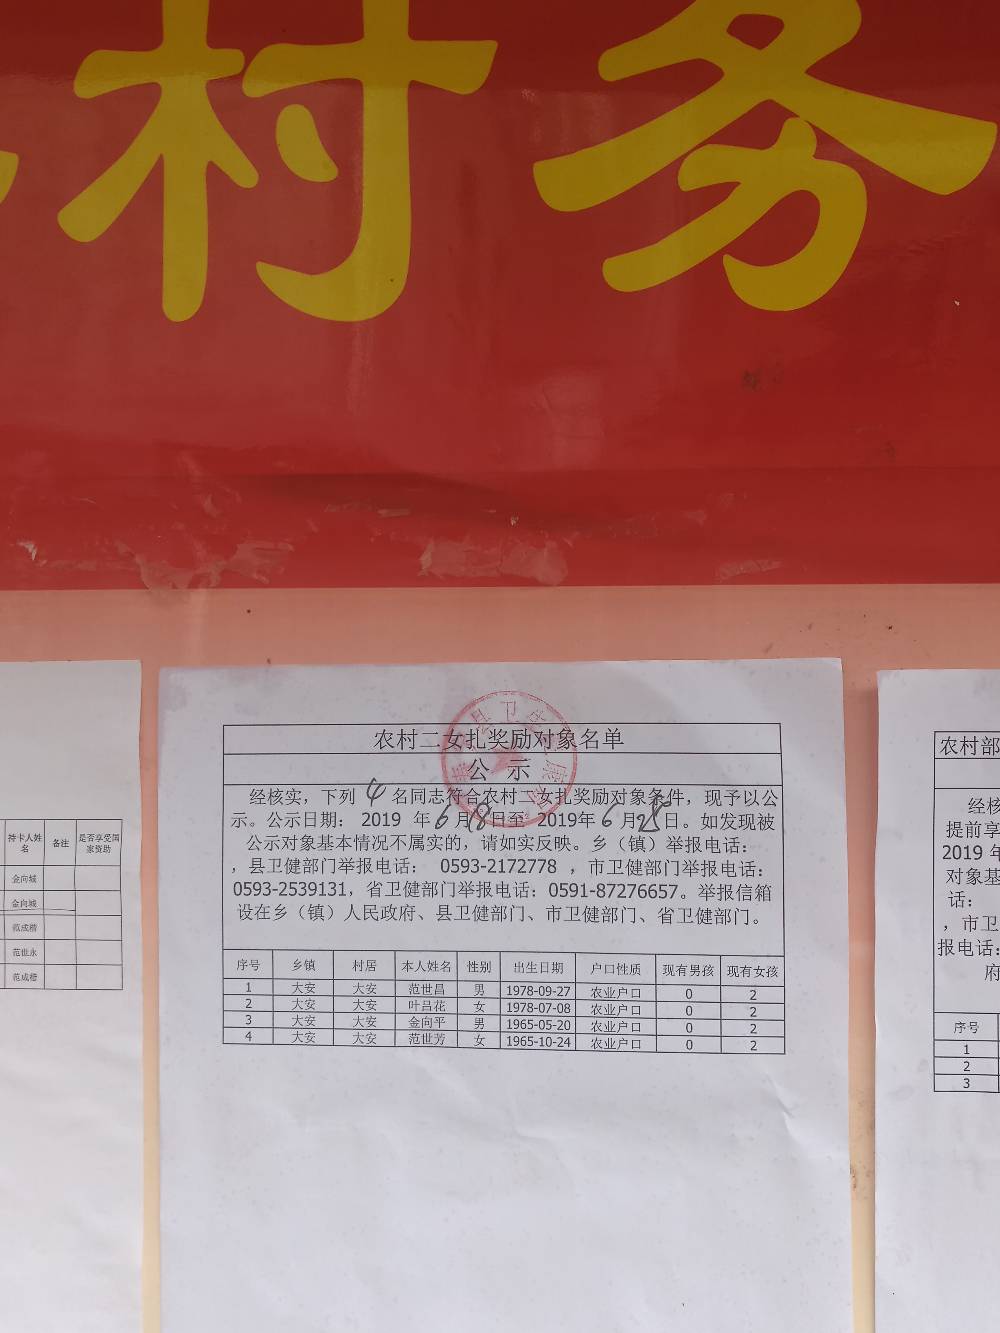 村务
持卡人姓名 备注 是否享受国家资助
金向城
金向城
范成楷
范世永
范成楷
农村二女扎奖励对象名单
公示
经核实，下列 4 名同志符合农村二女扎奖励对象条件，现予以公
示。公示日期： 2019 年6月18日至 2019年6月28日。如发现被
公示对象基本情况不属实的，请如实反映。乡（镇）举报电话：
，县卫健部门举报电话： 0593-2172778 ，市卫健部门举报电话：
0593-2539131，省卫健部门举报电话：0591-87276657。举报信箱
设在乡（镇）人民政府、县卫健部门、市卫健部门、省卫健部门。
序号 乡镇 村居 本人姓名 性别 出生日期 户口性质 现有男孩 现有女孩
1 大安 大安 范世昌 男 1978-09-27 农业户口 0 2
2 大安 大安 叶吕花 女 1978-07-08 农业户口 0 2
3 大安 大安 金向平 男 1965-05-20 农业户口 0 2
4 大安 大安 范世芳 女 1965-10-24 农业户口 0 2
农村部
经核
提前享
2019 年
对象基
话：
，市卫
报电话：
府
序号
1
2
3